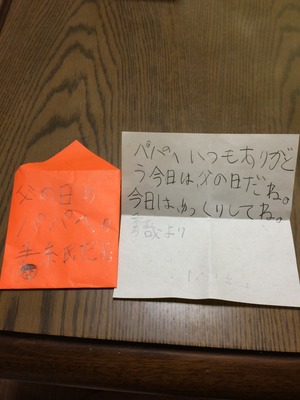 父の日の
パパへの
パパへ いつもありがど
う今日は、父の日だね。
今日はゆっくりしてね。
より